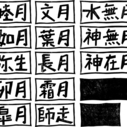 睦月 文月 水無月
如月 葉月 神無月
弥生 長月 神在月
卯月 霜月
皐月 師走